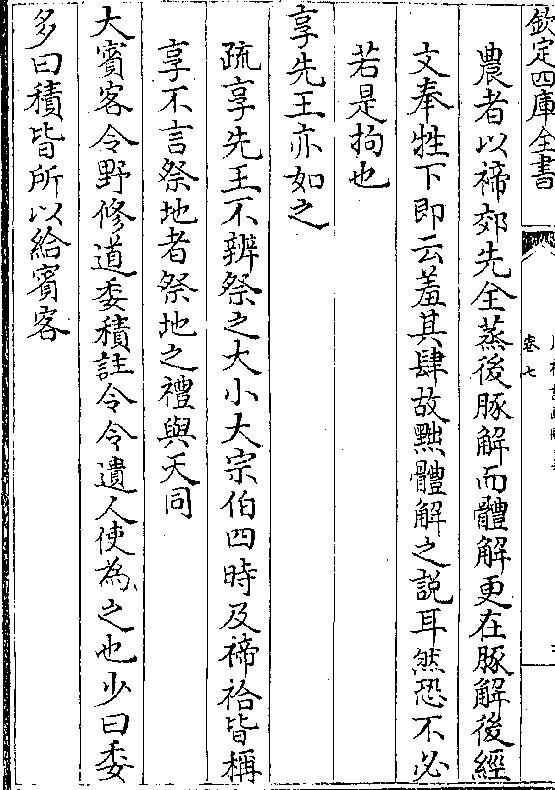 欽定四庫全書
卷七
農者以禘郊先全蒸後豚解而體解更在豚解後經
文奉牲下即云羞其肆故黜體解之説耳然恐不必
若是拘也
享先王亦如之
疏享先王不辨祭之大小大宗伯四時及禘祫皆稱
享不言祭地者祭地之禮與天同
大賔客令野修道委積註令令遺人使為之也少曰委
多曰積皆所以給賔客